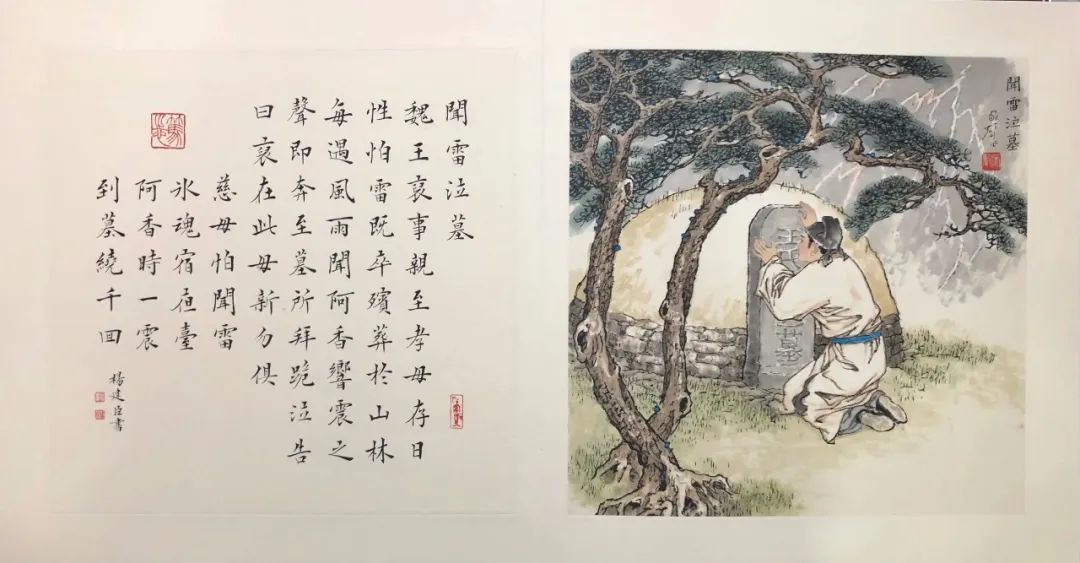 聞雷泣墓
魏王裒事親至孝母存日
性怕雷既卒殯葬於山林
每遇風雨聞阿香響震之
聲即奔至墓所拜跪泣告
曰裒在此母新勿俱
慈母怕聞雷
氷魂宿夜臺
阿香時一震
到墓繞千回
楊建臣書
聞雷泣墓